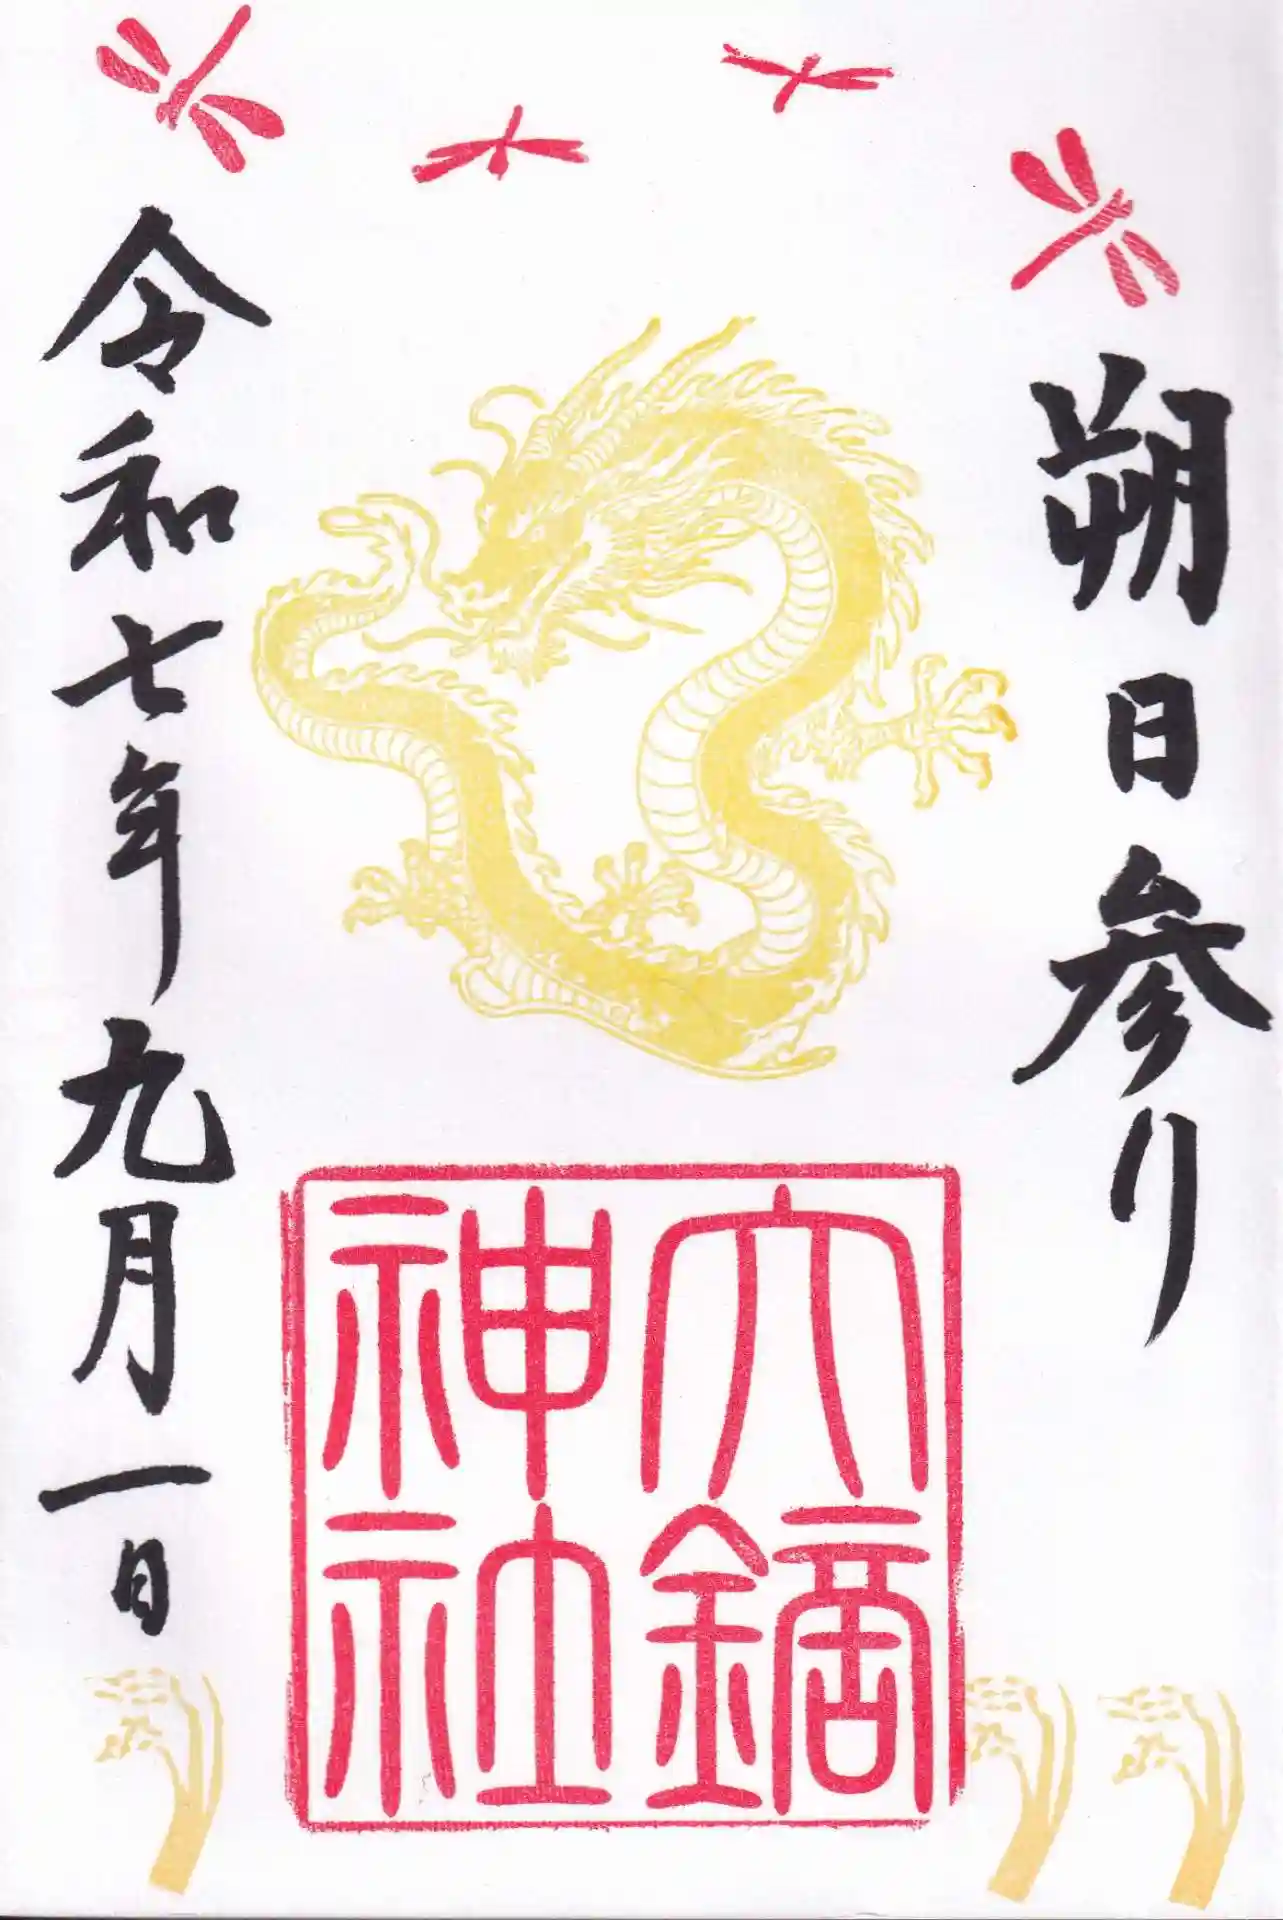 朔日参り
六鏑
神社
令和七年九月一日